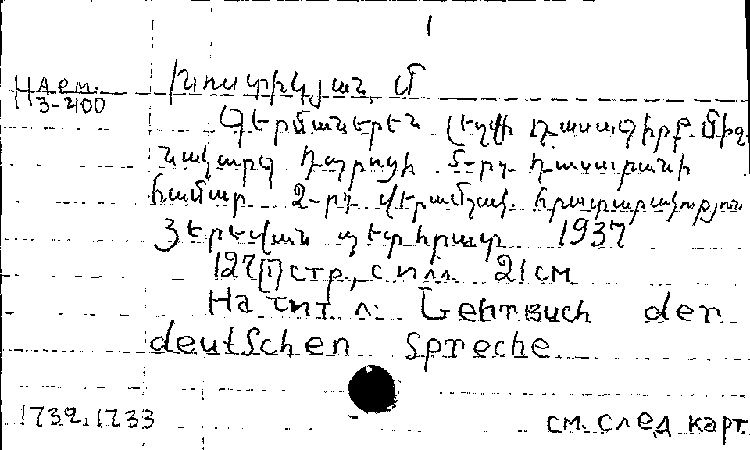 1
Наем.
3-2100
Խոստիկյան, Մ
Գերմաներեն լեզվի դասագիրք միջ
նակարգ դպրոցի 5-րդ դասարանի
համար 2-րդ վերամշակ. հրատարակություն
Յերեվան պետհրատ 1937
127 [1] стр, с илл. 21 см
На тит л: Lehrbuch der
deutschen Spreche
1732, 1733
см. след карт.